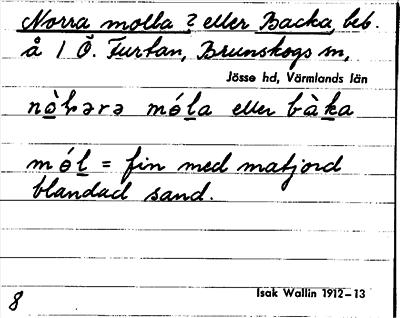 Norra molba ? eller Backa, beb.
å 1 Ö. Furtan, Brunskogs sn,
Jösse hd, Värmlands län
eller bàka
mól = fin med matjord
blandad sand.
8
Isak Wallin 1912–13